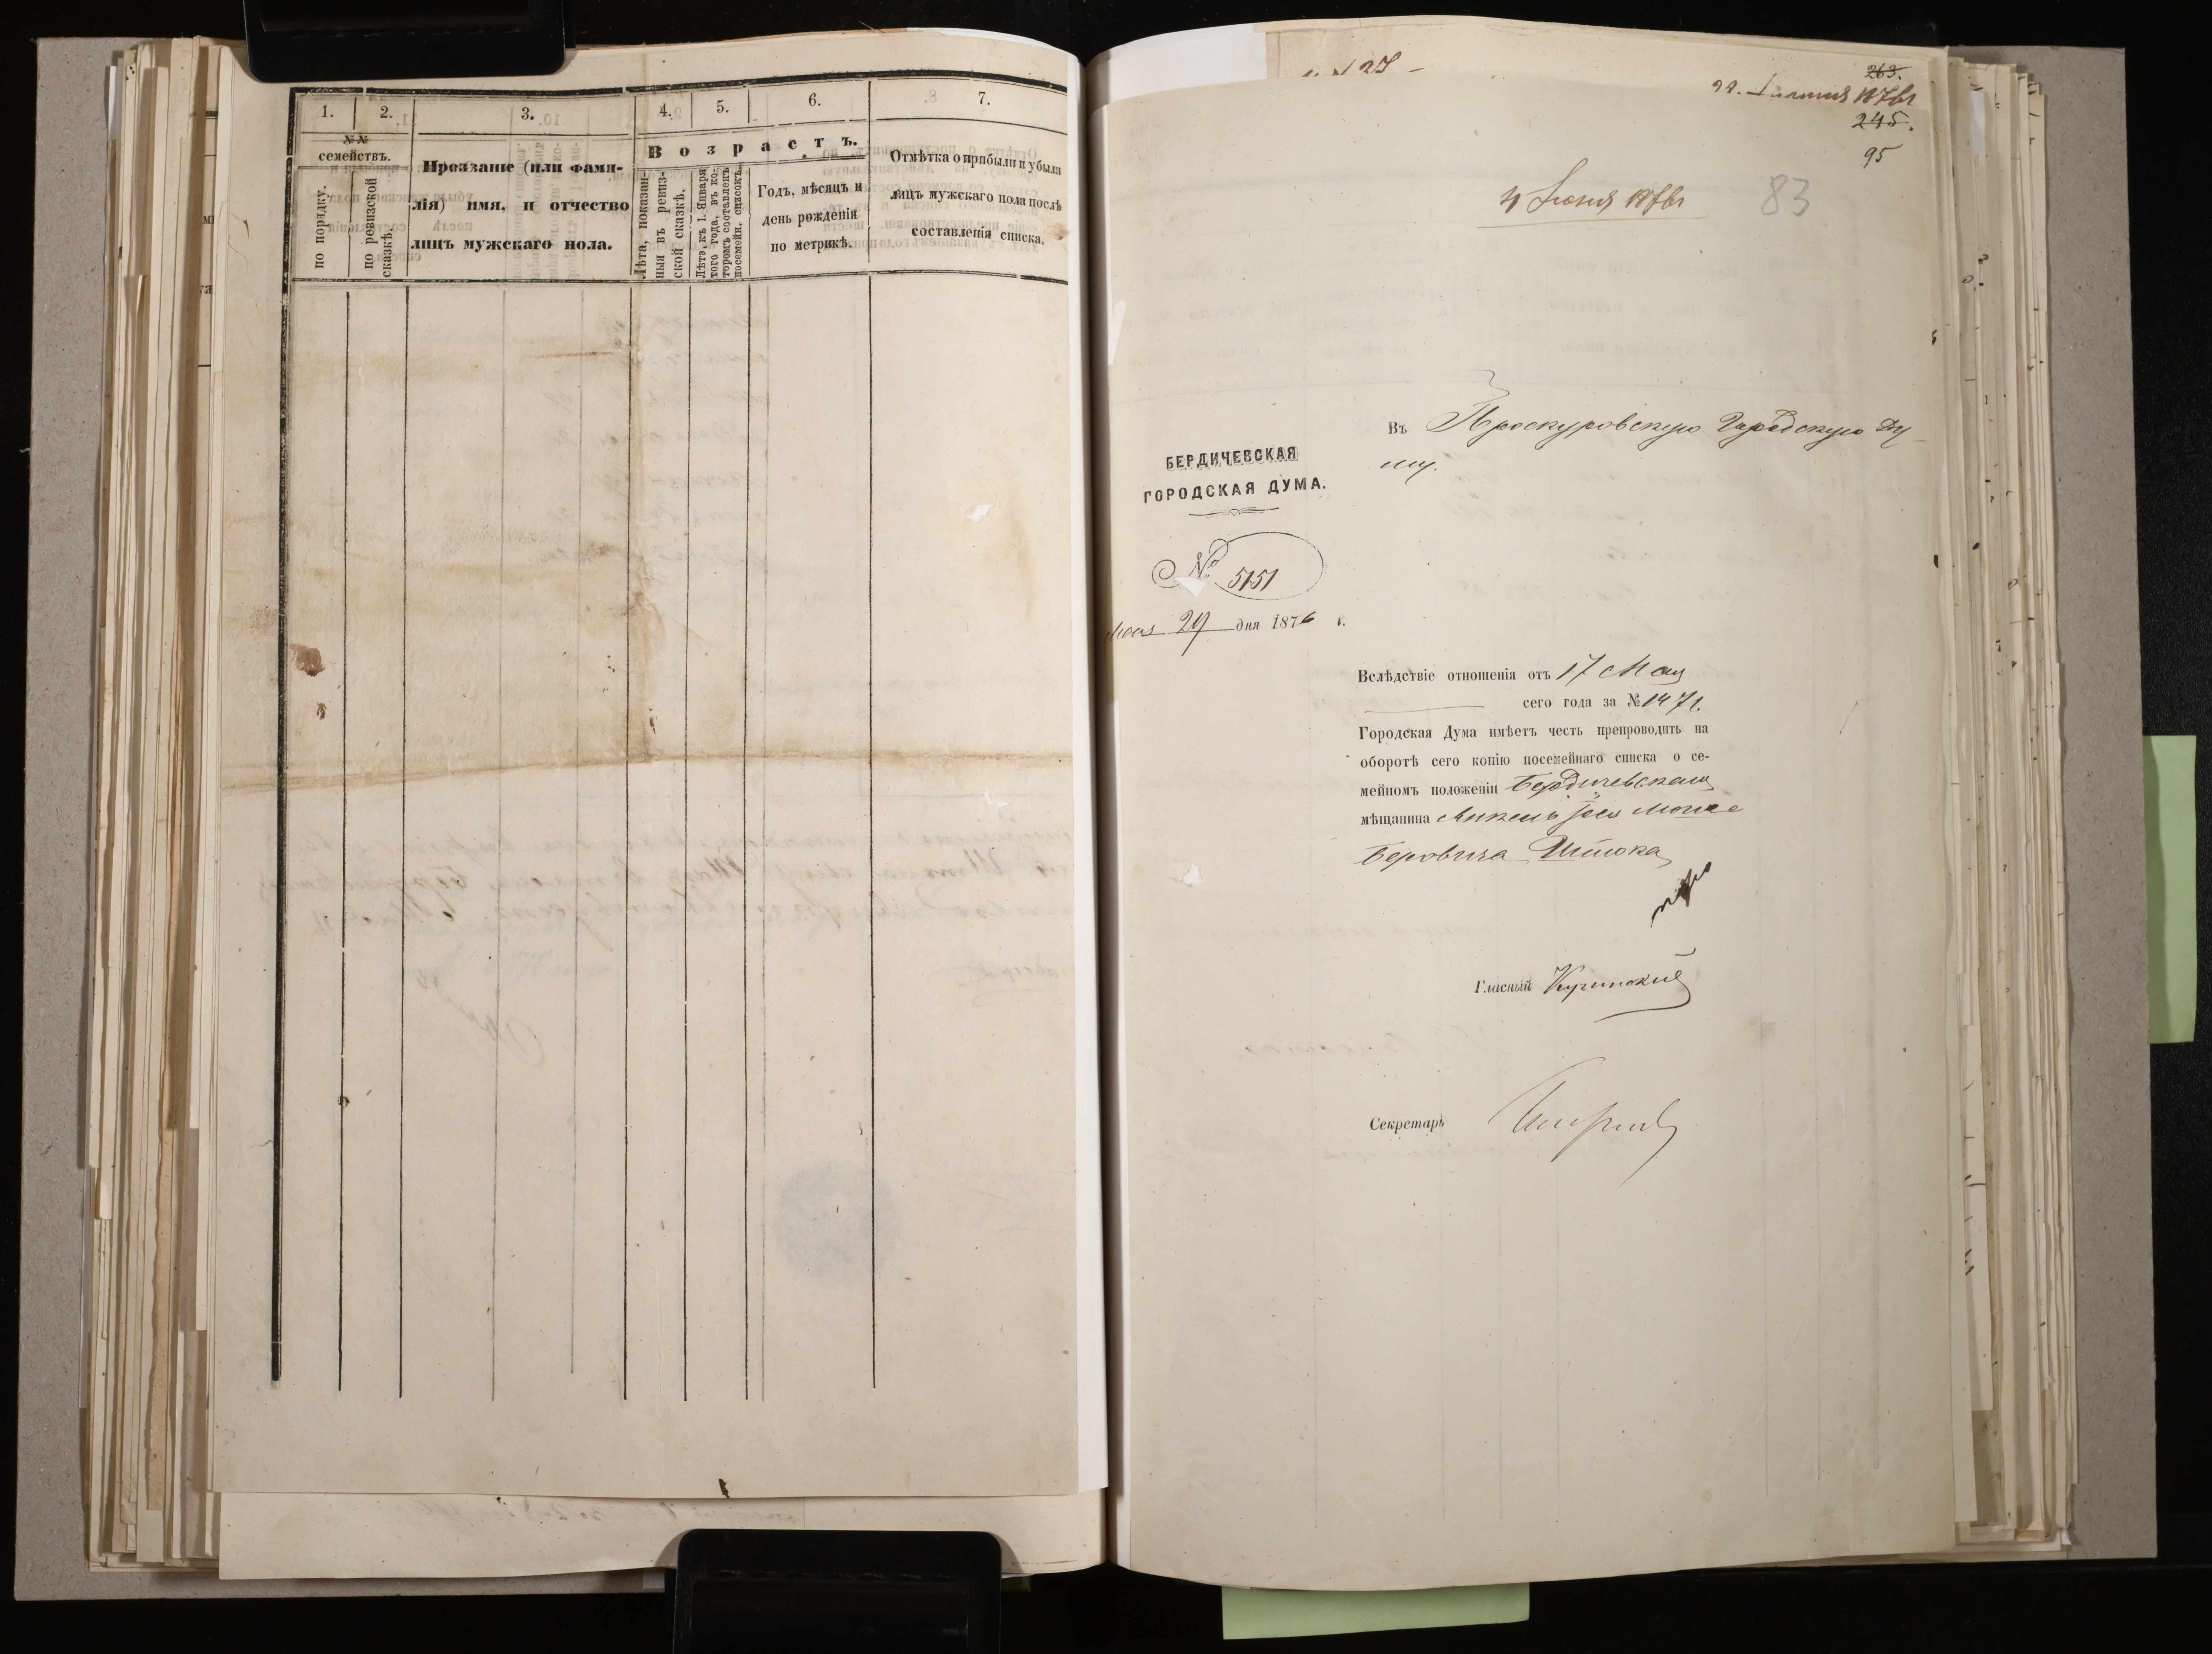 1.
2.
3.
4.
5.
6.
7.
№№
семействъ.
по порядку.
по ревизской
сказкѣ.
Прозваніе (или фами-
лія) имя, и отчество
лицъ мужскаго пола.
Возрастъ.
Лѣта, показан-
ныя въ ревиз-
ской сказкѣ.
Лѣта, къ 1. Января
того года, въ ко-
торомъ составленъ
посемейн. списокъ.
Годъ, мѣсяцъ и
день рожденія
по метрикѣ.
Отмѣтка о прибыли и убыли
лицъ мужскаго пола послѣ
составленія списка.
27 -
263.
245.
95
83
4 Іюня 1876 г
Въ Проскуровскую Городскую Ду
му.
БЕРДИЧЕВСКАЯ
ГОРОДСКАЯ ДУМА.
№ 5151
Мая 29 дня 1876 г.
Вслѣдствіе отношенія отъ 17 Мая
сего года за № 1471.
Городская Дума имѣетъ честь препроводить на
оборотѣ сего копію посемейнаго списка о се-
мейномъ положеніи Бердичевскаго
мѣщанина
Беровича Штока
Гласный
Секретарь